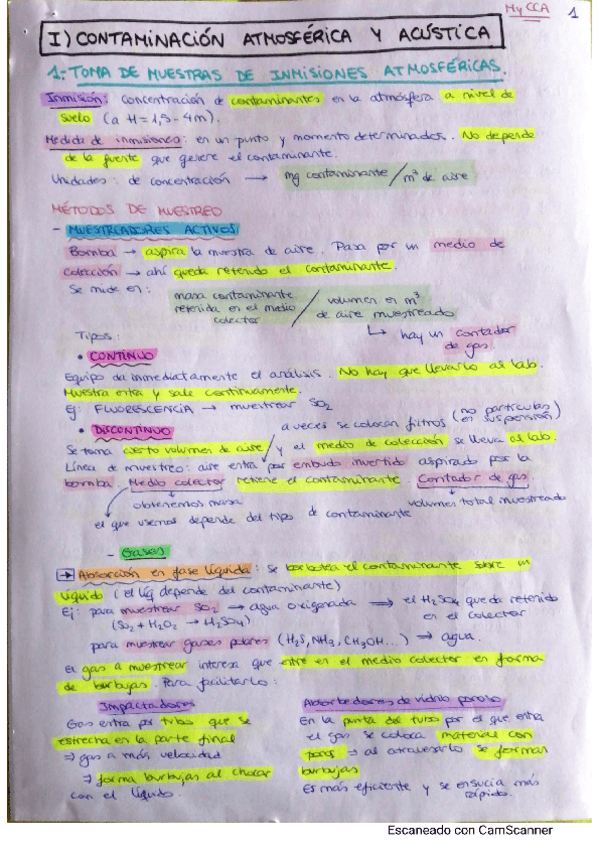 MyCCA 1
I) CONTAMINACIÓN ATMOSFÉRICA Y ACÚSTICA
1.- TOMA DE MUESTRAS DE INMISIONES ATMOSFÉRICAS.
Inmisión: concentración de contaminantes en la atmósfera a nivel de
suelo (a H=1,5-4m).
Medida de inmisiones: en un punto y momento determinados. No depende
de la fuente que genere el contaminante.
Unidades: de concentración → mg contaminante / m³ de aire
MÉTODOS DE MUESTREO
- MUESTREADORES ACTIVOS
Bomba → aspira la muestra de aire. Pasa por un medio de
colección → ahí queda retenido el contaminante.
Se mide en: masa contaminante retenida en el medio colector / volumen en m³ de aire muestreado
Tipos: ↳ hay un contador de gas.
• CONTINUO
Equipo da inmediatamente el análisis. No hay que llevarlo al lab.
Muestra entra y sale continuamente.
Ej: FLUORESCENCIA → muestrear SO₂
• DISCONTINUO a veces se colocan filtros (no partículas en suspensión)
Se toma cierto volumen de aire / y el medio de colección se lleva al lab.
Línea de muestreo: aire entra por embudo invertido aspirado por la
bomba. Medio colector retiene el contaminante. Contador de gas.
obtenemos masa volumen total muestreado
el que usemos depende del tipo de contaminante
- Gases
→ Absorción en fase líquida: se borbotea el contaminante sobre un
líquido (el líq depende del contaminante)
Ej: para muestrear SO₂ → agua oxigenada → el H₂SO₄ queda retenido
(SO₂ + H₂O₂ → H₂SO₄) en el colector
para muestrear gases polares (H₂S, NH₃, CH₃OH...) → agua.
El gas a muestrear interesa que entre en el medio colector en forma
de burbujas. Para facilitarlo:
Impactadores
Gas entra por tubo que se
estrecha en la parte final
⇒ gas a más velocidad
⇒ forma burbujas al chocar
con el líquido.
Absorbedores de vidrio poroso
En la punta del tubo por el que entra
el gas se coloca material con
poros ⇒ al atravesarlo se forman
burbujas
Es más eficiente y se ensucia más
rápido.
Escaneado con CamScanner